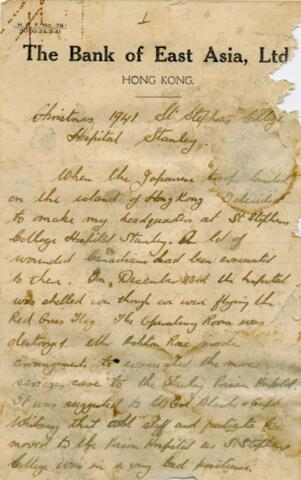 H.C.F. No. 78
1
The Bank of East Asia, Ltd
HONG KONG.
Christmas 1941 St Stephens College
Hospital Stanley.
When the Japanese troops landed
on the island of Hong Kong I decided
to make my headquarters at St Stephens
College Hospital Stanley. A lot of
wounded Canadians had been evacuated
to there. On December 23rd the hospital
was shelled even though we were flying the
Red Cross Flag. The Operating Room was
destroyed. Mr Ashton Rose made
arrangements to evacuated the more
serious case to the Stanley Prison Hospital
It was suggested to Lt Col Black & Capt
Whitney that all staff and patients be
moved to the Prison Hospital as St Stephens
College was in a very bad position.